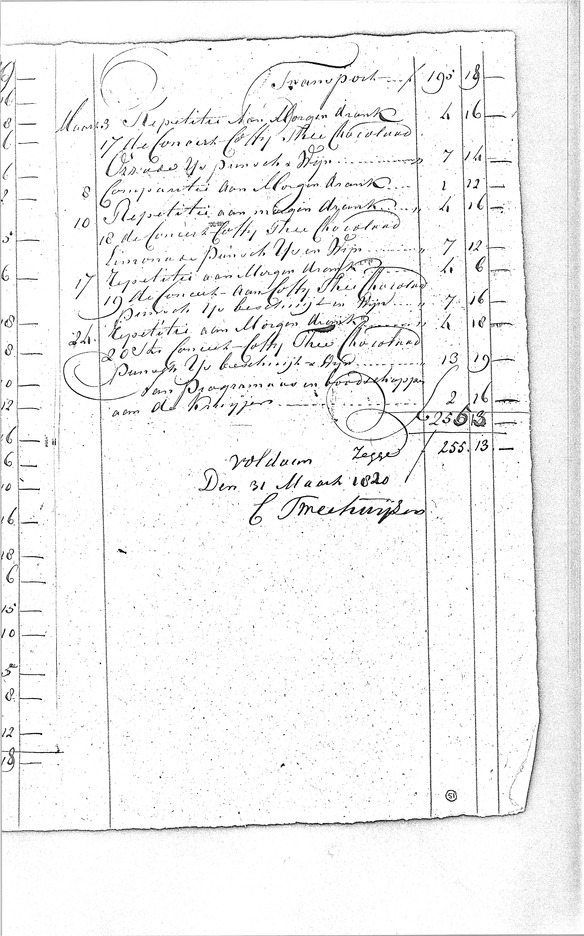 Transport 195 18
Maart 3 Repetitie Aan Morgen drank 4 16
17 de Concert Coffy Thee Chocolaad
Orsade Ys punsch & Wijn 7 14
8 Comparitie aan Morgen drank 1 12
10 Repetitie aan morgen drank 4 16
18 de Concert Coffy Thee Chocolaad
Limonade punsch Ys en Wijn 7 12
17 Repetitie aan Morgen drank 4 6
19 de Concert aan Coffy Thee Chocolad
punsch Ys beschuijt en Wijn 7 16
24 Repetitie aan Morgen drank 4 18
20 ste Concert Coffy Thee Chocolaad
punsch Ys beschuijt & Wijn 13 19
Van Programmaas en boodschappen
aan de Kruyjer 2 16
255 13
voldaan Zegge 255 13
Den 31 Maart 1820
C Tmeehuijsen
51